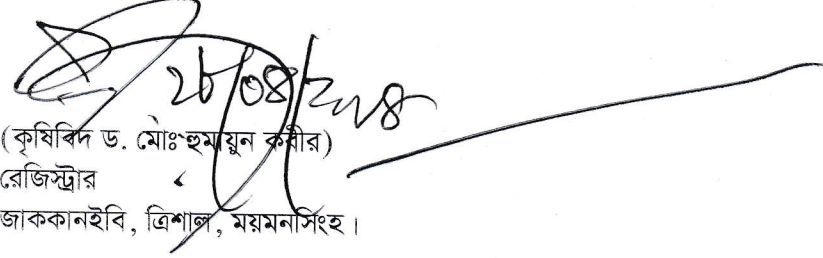 ২৮/০৪/২০২৪
(কৃষিবিদ ড. মোঃ হুমায়ুন কবীর)
রেজিস্ট্রার
জাককানইবি, ত্রিশাল, ময়মনসিংহ।